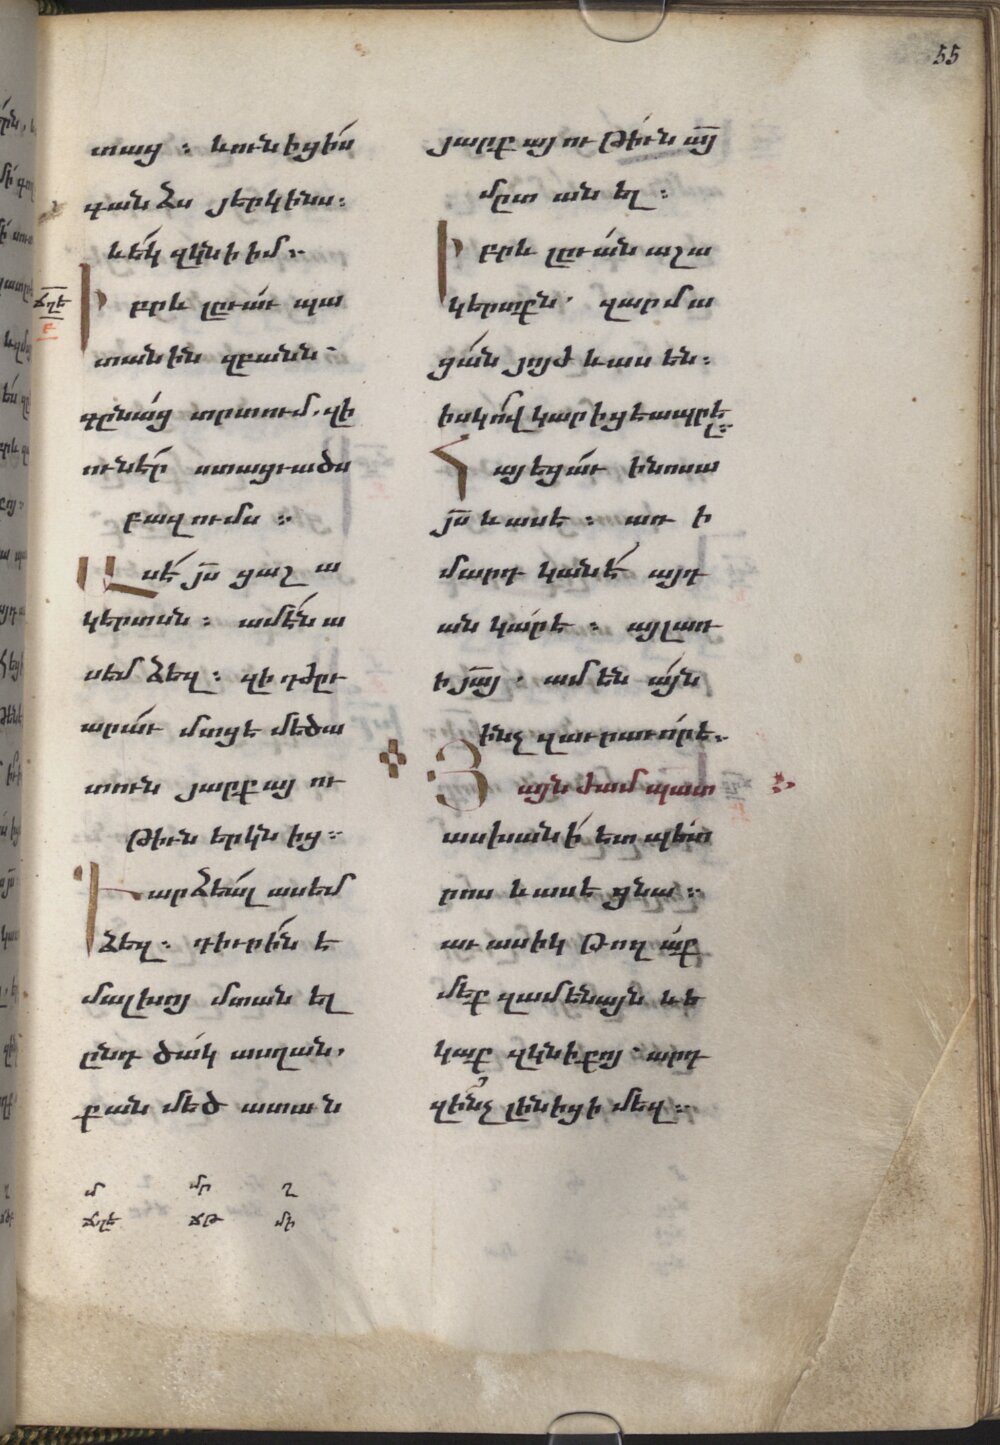 55
տաց ։ ևունիցիս
գանձս յերկինս։
ևեկ զկնի իմ ։
ՃՂԵ
Իբրև լըւաւ պա
տանին զբանն ՝
գընաց տրտում, զի
ունէր ստացուածս
բազումս ։
Ասէ յս̄ ցաշա
կերտսն ։ ամէն ա
սեմ ձեզ ։ զի դժըւ
արաւ մտցէ մեծա
տուն յարքայու
թիւն երկնից ։
Դարձեալ ասեմ
ձեզ ։ դիւրին է
մալխոյ մտանել
ընդ ծակ ասղան,
քան մեծատան
յարքայութիւն ա̄յ
մըտանել ։
Իբրև լըւան աշա
կերտքն՝ զարմա
ցան յոյժ ևասեն ։
իսկ ով կարիցէ ապրել
։
Հայեցաւ ինոսա
յս̄ ևասէ ։ առ ի
մարդկանէ այդ
անկար է ։ այլ առ
ի յա̄յ ՝ ամենայն
ինչ զաւրաւոր է ։
Յայնժամ պատ
ասխանի ետ պետ
րոս ևասէ ցնա ։
աւասիկ թողաք
մեք զամենայն ևե
կաք զկնի քոյ ՝ արդ
զինչ լինիցի մեզ ։
մ մր ղ
ՃՂԵ ՃԹ ՄԻ